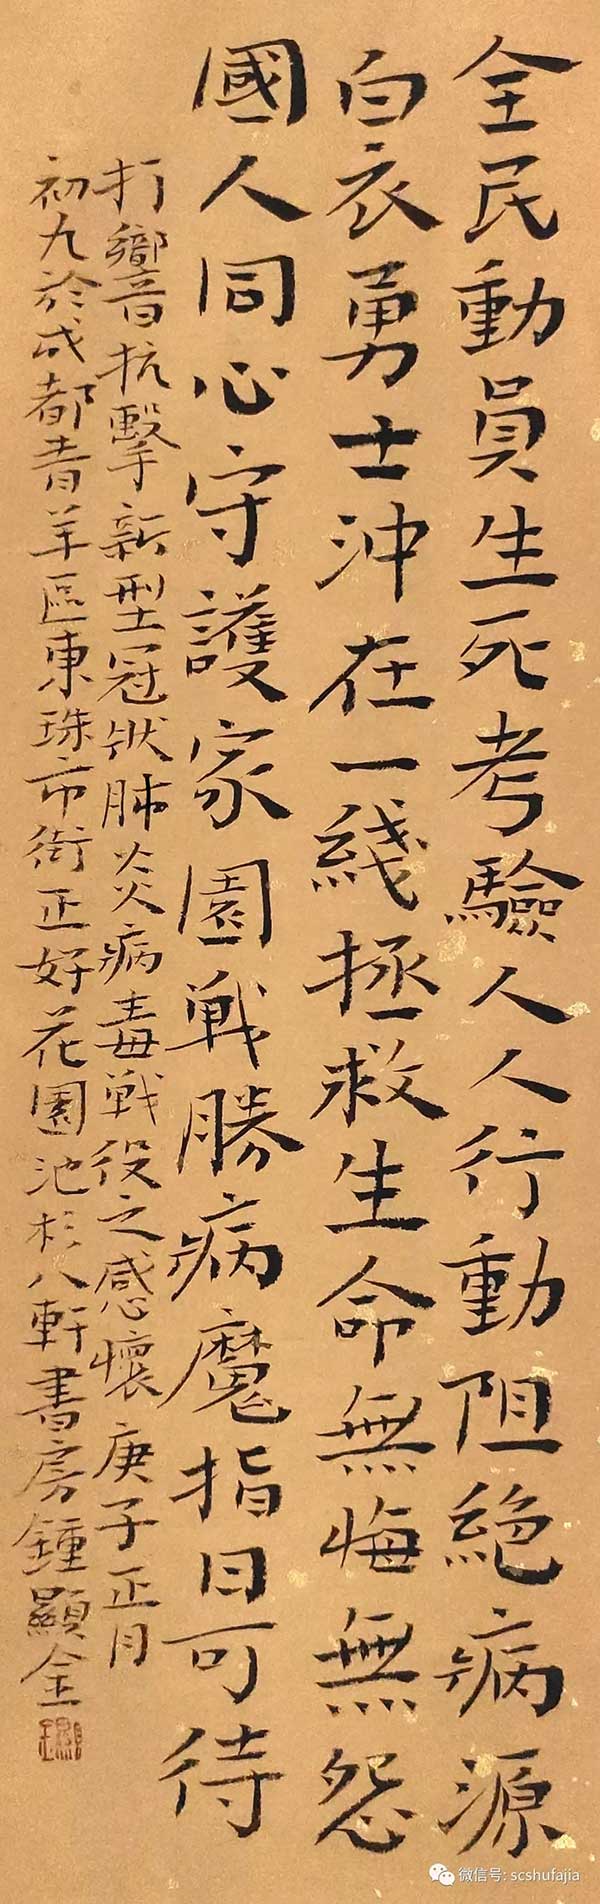 全民動員生死考驗人人行動阻絕病源
白衣勇士沖在一綫拯救生命無悔無怨
國人同心守護家園戰勝病魔指日可待
打響抗擊新型冠狀肺炎病毒戰役之感懷庚子正月
初九於成都青羊區東珠市街正好花園池杉八軒書房鍾顯金
微信号: scshufajia